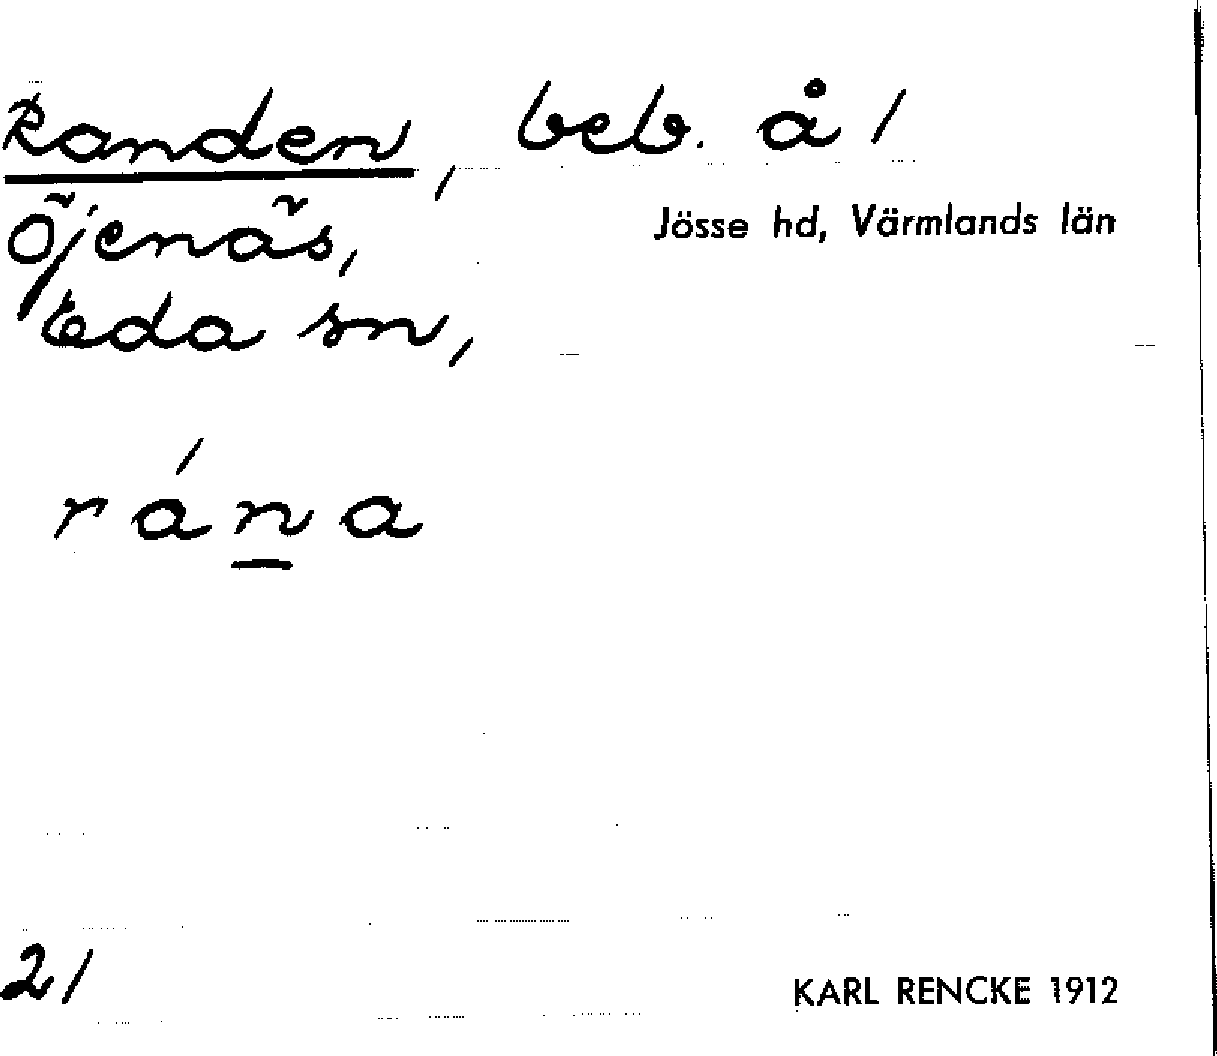 Randen, beb. å /
Öjenäs,
Jösse hd, Värmlands län
Eda sn,
rána
2/
KARL RENCKE 1912